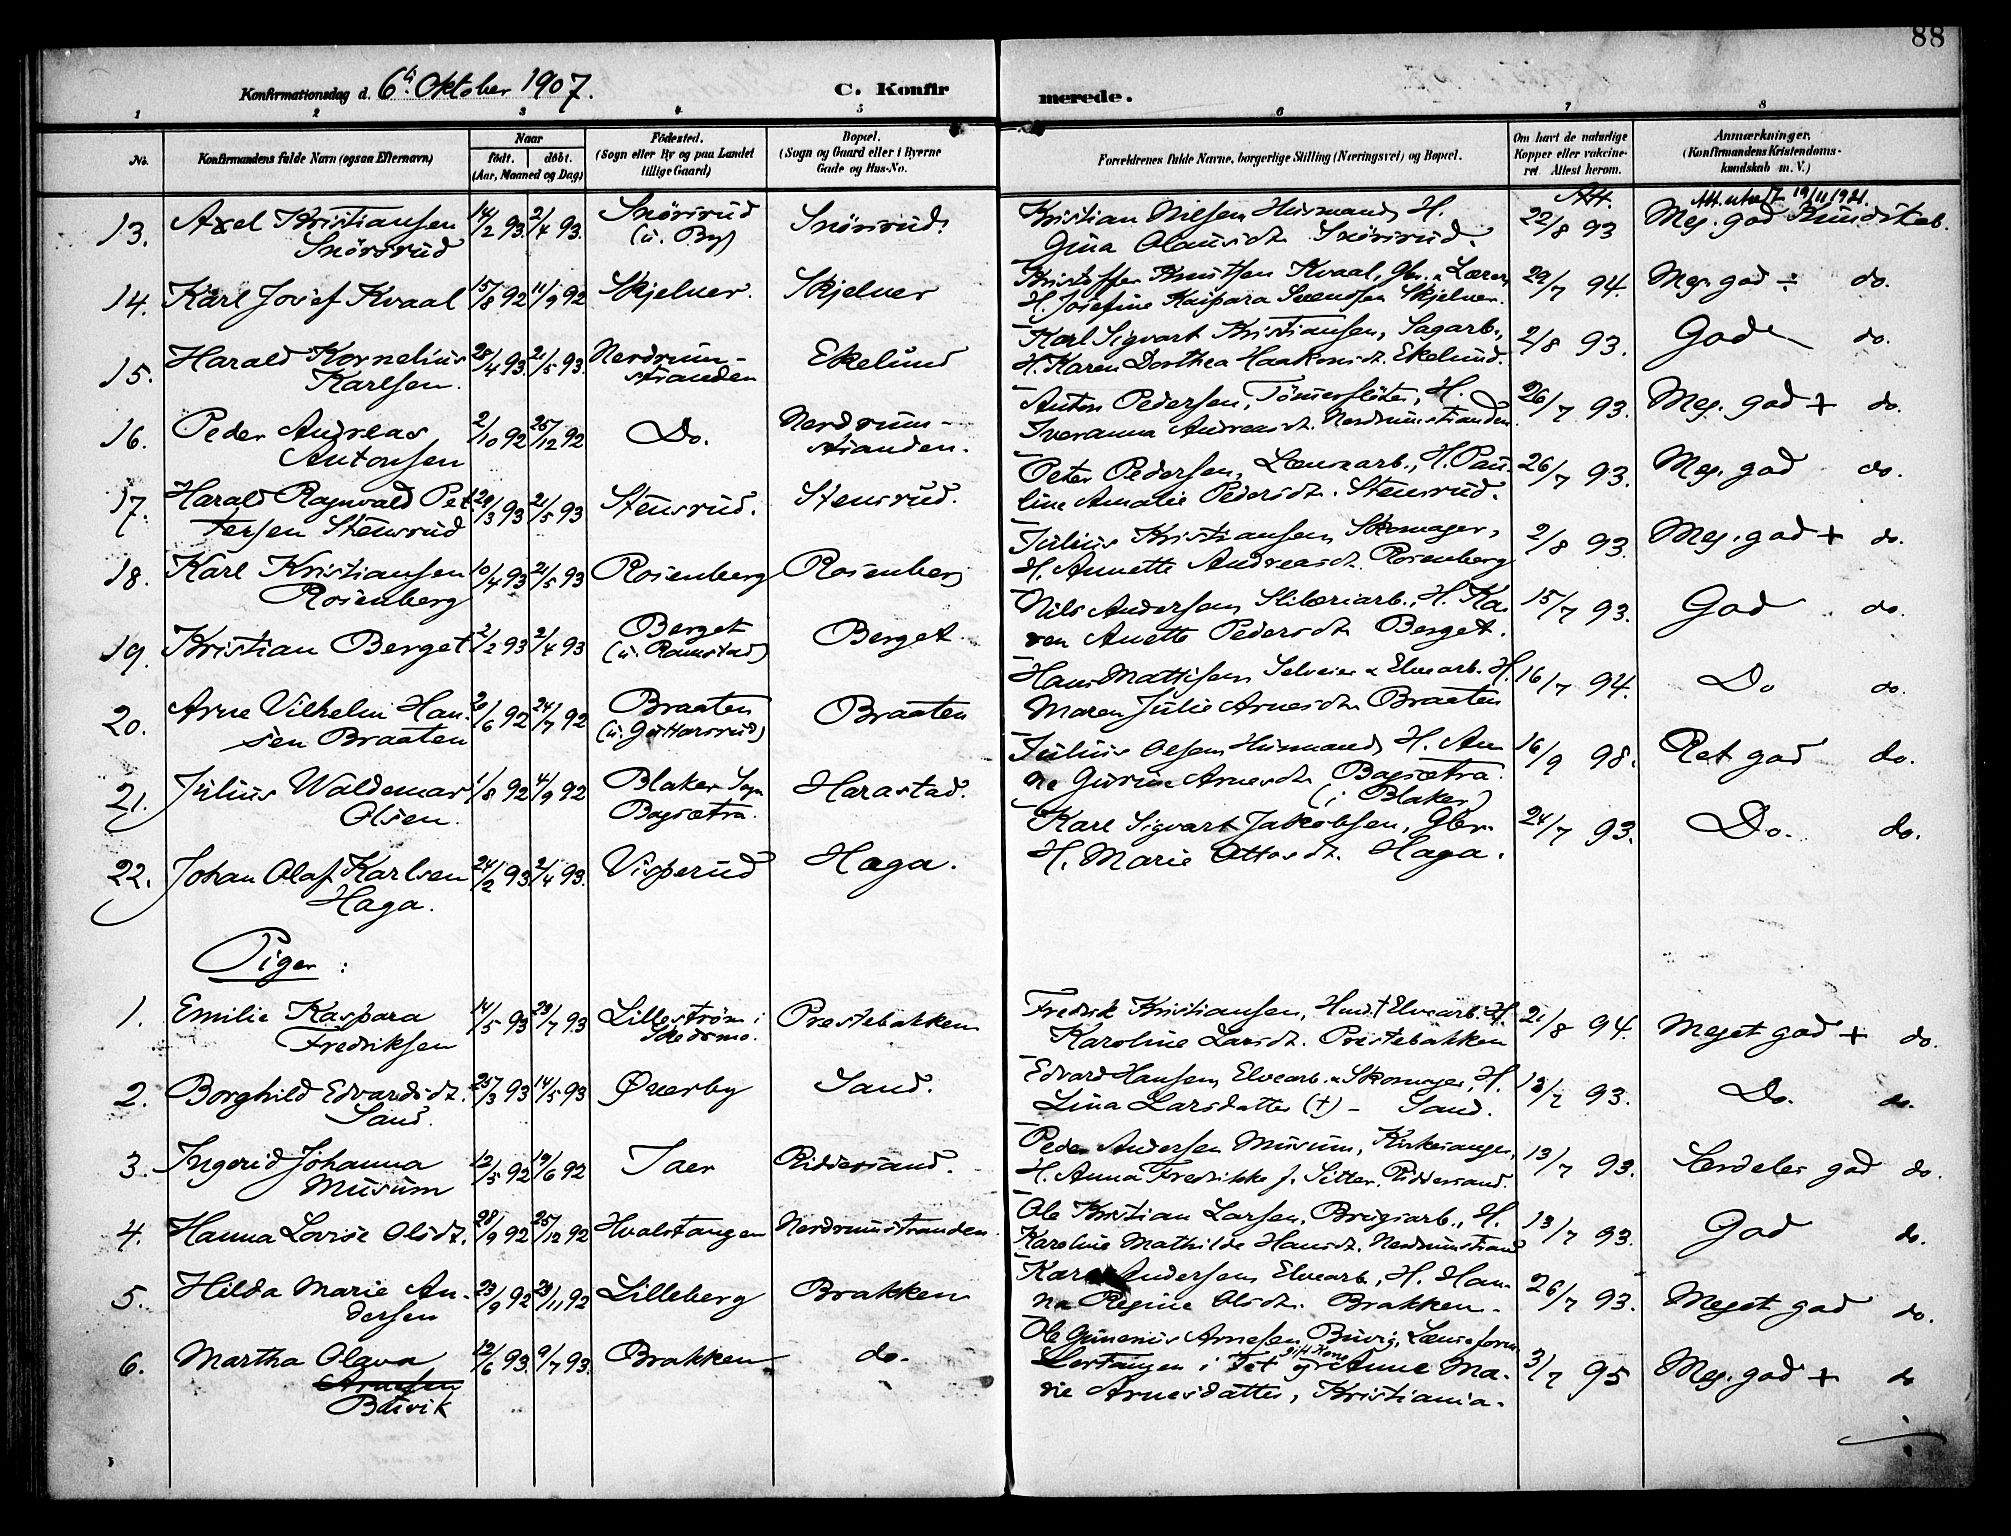 88
Konfirmationsdag d. 6te Oktober 1907.
C. Konfirmerede.
1 2 3 4 5 6 7 8
No.
Konfirmandens fulde Navn (ogsaa Efternavn)
Naar
født. døbt.
(Aar, Maaned og Dag)
Fødested.
(Sogn eller By og paa Landet
tillige Gaard)
Bopæl.
(Sogn og Gaard eller i Byerne
Gade og Hus-No.
Forældrenes fulde Navne, borgerlige Stilling (Næringsvei) og Bopæl.
Om havt de naturlige
Kopper eller vakcine-
ret. Attest herom.
Anmærkninger,
(Konfirmandens Kristendoms-
kundskab m. V.)
Att. Att. utst. 19/11 1921.
13. Axel Kristiansen 14/2 93. 2/4 93. Snörsrud Snörsrud. Kristian Nilsen Husmand, H. 22/8 93 Meg. god Kundskab.
Snörsrud (u. By) Gina Olausdt. Snörsrud.
14. Karl Josef Kvaal 15/8 92 11/9 92 Skjelver. Skjelver Kristoffer Knutsen Kvaal, Gbr. & Lærer, 29/7 94. Meg. god ÷ do.
H. Josefine Kaspara Svendsen Skjelver.
15. Harald Kornelius 28/4 93. 21/5 93. Nerdrum- Ekelund Karl Sigvart Kristiansen, Sagarb., 2/8 93. God do.
Karlsen. stranden H. Karen Dorthea Haakonsdt. Ekelund.
16. Peder Andreas 2/10 92 25/12 92 Do. Nerdrum- Anton Pedersen, Tömmerflöter, H. 26/7 93. Meg. god + do.
Antonsen stranden. Iveranna Andreasdt. Nerdrumstranden
17. Harald Ragnvald Pet- 29/3 93 21/5 93 Stensrud. Stensrud. Peter Pedersen, Lænsearb., H. Pau- 26/7 93. Meg. god do.
tersen Stensrud line Amalie Pedersdt. Stensrud.
18. Karl Kristiansen 10/4 93 21/5 93 Rosenberg Rosenberg Julius Kristiansen Skomager, 2/8 93. Meg. god + do.
Rosenberg H. Annette Andreasdt. Rosenberg
19. Kristian Berget 2/2 93 2/4 93 Berget Berget Nils Andersen Sliberiarb., H. Ka- 15/7 93. God do.
(u. Ramstad) ren Anette Pedersdt. Berget.
20. Arne Vilhelm Han- 26/6 92 24/7 92 Braaten Braaten Hans Mathisen Selveier & Elvearb. H. 16/7 94. Do do.
sen Braaten (u. Guttorsrud) Maren Julie Arnesdt. Braaten
21. Julius Waldemar 1/8 92 4/9 92 Blaker Sogn Harastad. Julius Olsen Husmand, H. An- 16/9 98. Ret god do.
Olsen. Bagsætra. ne Gurine Arnesdt. Bagsætra.
(i Blaker)
22. Johan Olaf Karlsen 24/2 93 2/4 93. Visperud Haga. Karl Sigvart Jakobsen, Gbr. 24/7 93. Do. do.
Haga. H. Marie Ottosdt. Haga.
Piger:
1. Emilie Kaspara 14/5 93 23/7 93 Lillestrøm i Prestebakken Fredrik Kristiansen, Husm. & Elvearb. H. 21/8 94. Meget god + do.
Fredriksen Skedsmo. Karoline Larsdt. Prestebakken
2. Borghild Edvardsdt. 25/3 93 14/5 93 Øverby Sand. Edvard Hansen, Elvearb. & Skomager, H. 13/7 93. Do. do.
Sand. Lina Larsdatter (+) - Sand.
3. Ingerid Johanna 12/5 92 19/6 92 Taer Riddersand. Peder Andersen Musum, Kirkesanger, 13/7 93. Særdeles god do.
Musum H. Anna Fredrikke f. Sitter. Riddersand.
4. Hanna Lovise Olsdt. 28/9 92 25/12 92 Hvalstangen Nerdrumstranden Ole Kristian Larsen, Brugsarb., H. 13/7 93. God do.
Karoline Mathilde Hansdt. Nerdrumstrand
5. Hilda Marie An- 23/9 92 20/11 92 Lilleberg Brakken Karl Andersen Elvearb., H. Han- 26/7 93. Meget god do.
dersen na Regine Olsdt. Brakken.
6. Martha Olava 12/6 93. 9/7 93. Brakken do. Ole Gunerius Arnesen Buvig, Lænseform. 3/7 95 Meg. god + do
Arnesen Lertangen i Fet og gift Kone Anne Ma-
Buvik rie Arnesdatter, Kristiania.